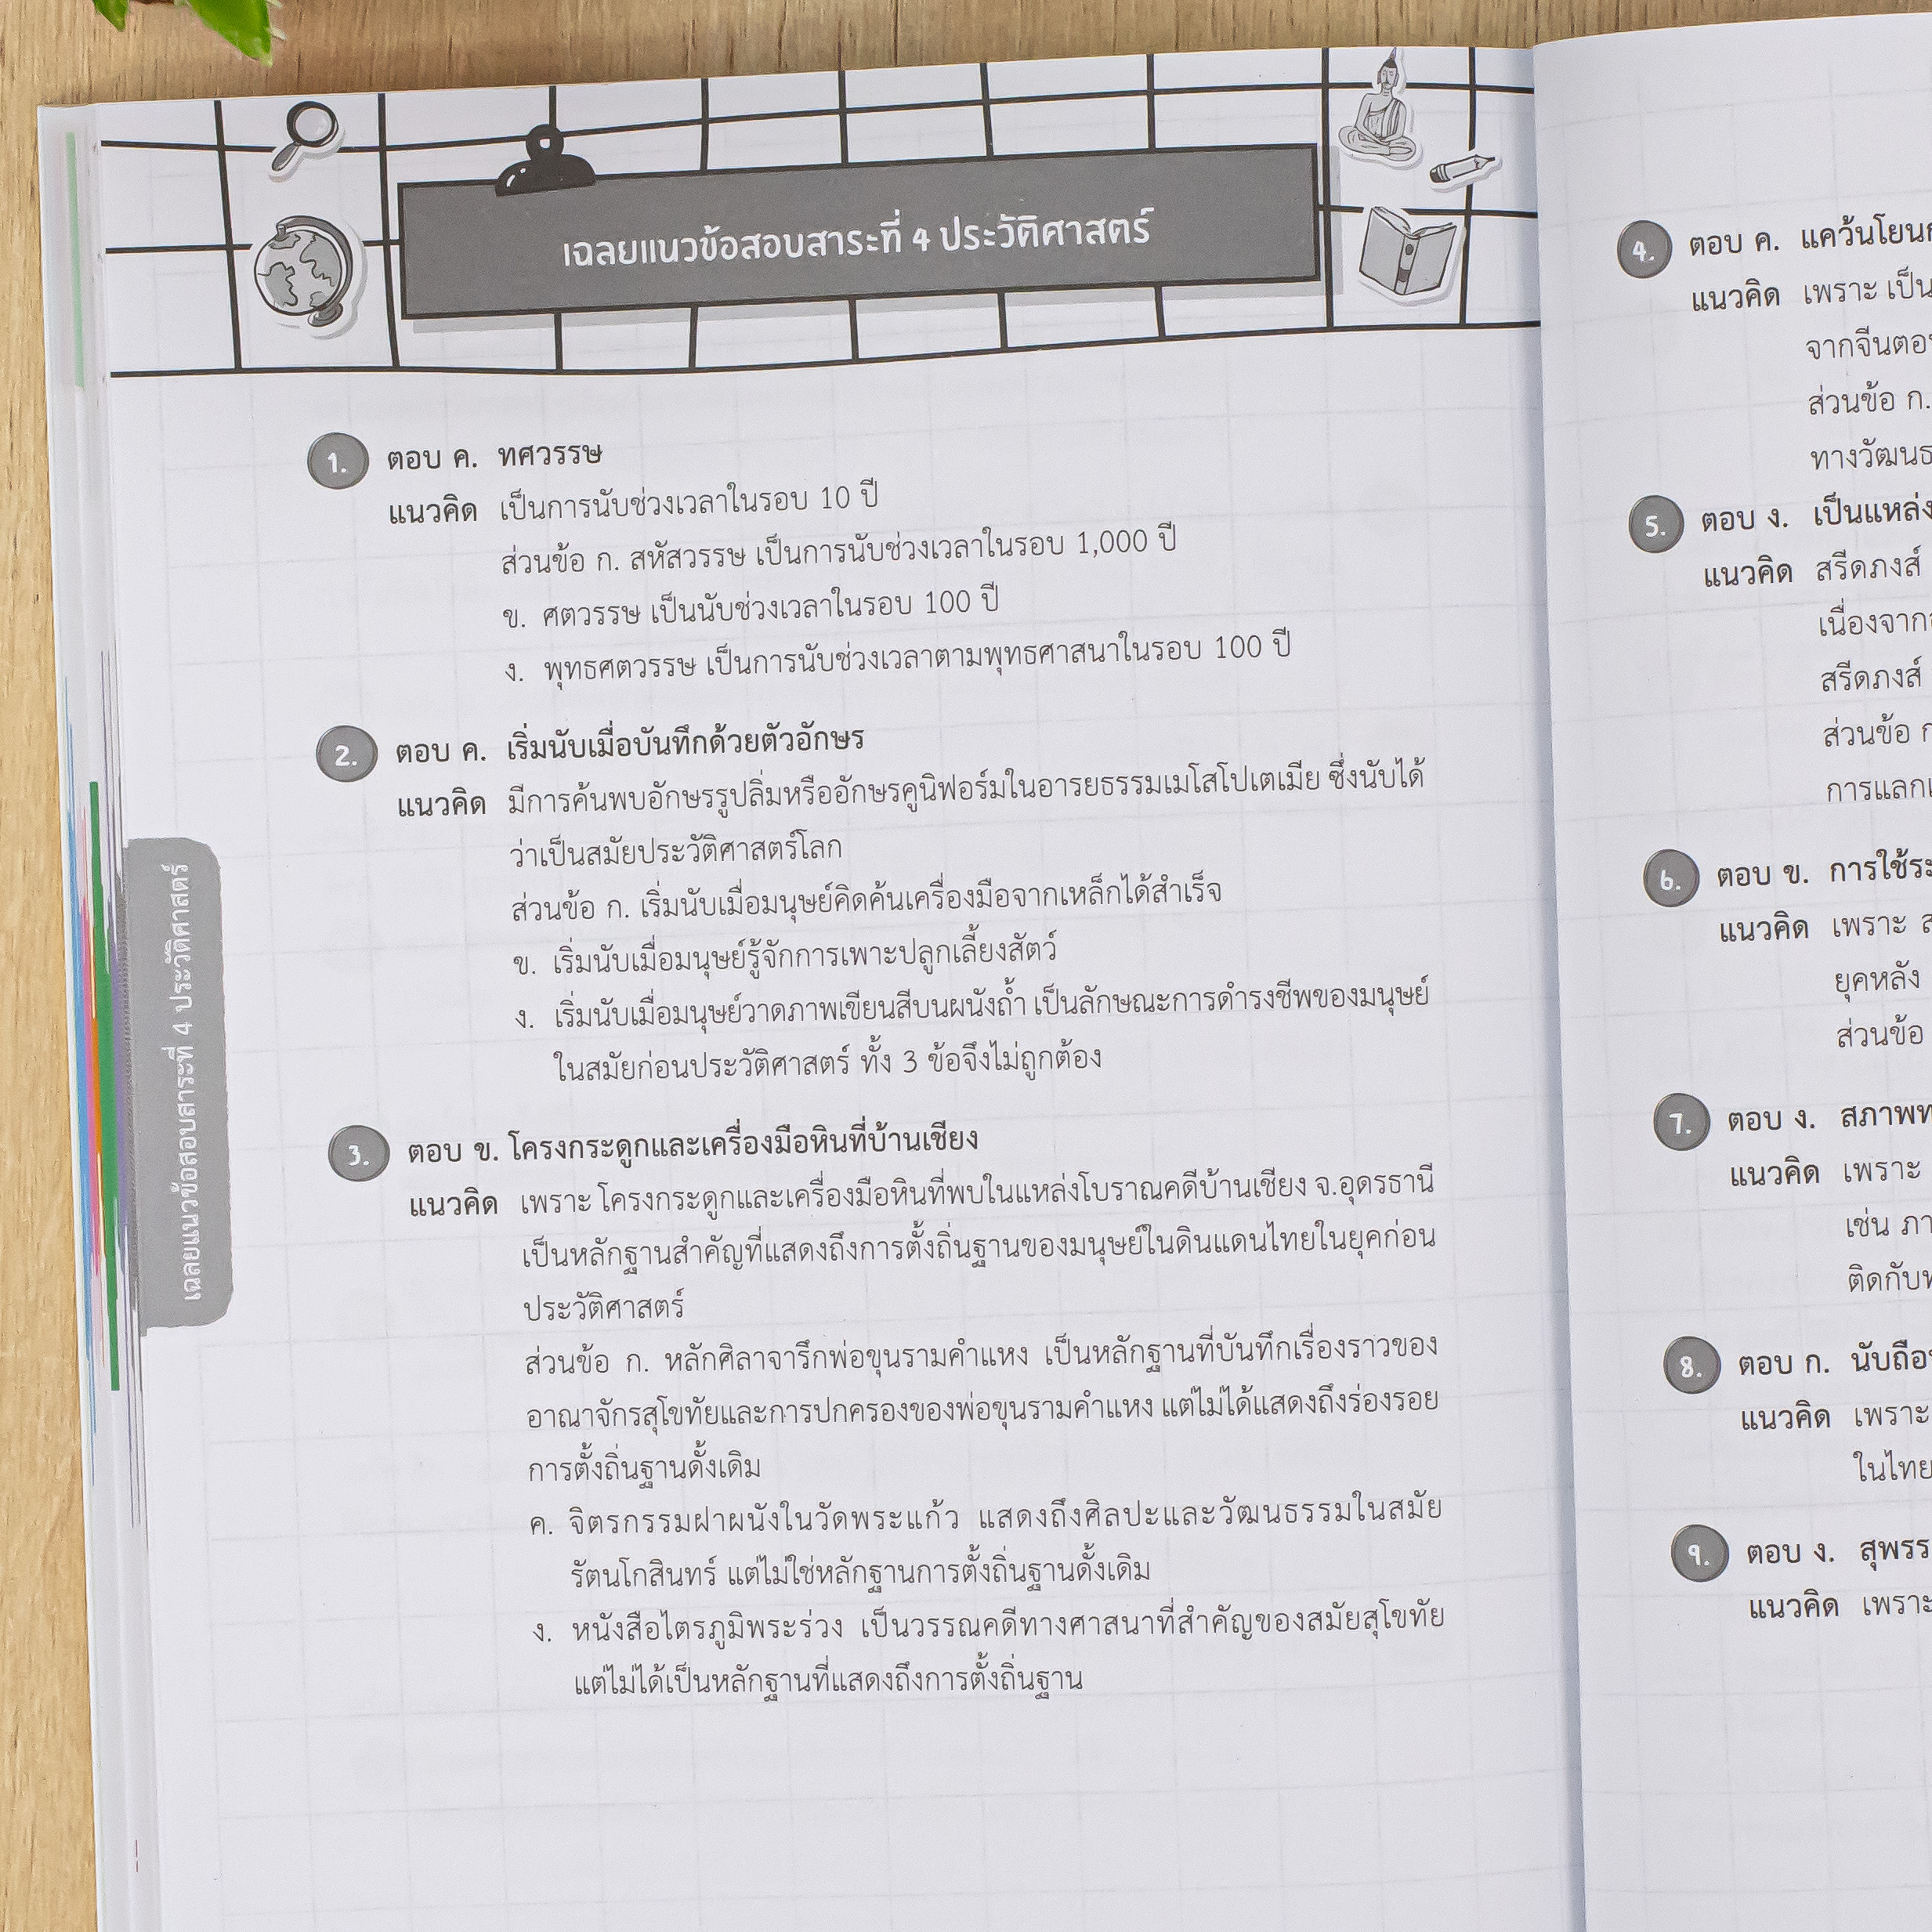 เฉลยแนวข้อสอบสาระที่ 4 ประวัติศาสตร์
1. ตอบ ค. ทศวรรษ
แนวคิด เป็นการนับช่วงเวลาในรอบ 10 ปี
ส่วนข้อ ก. สหัสวรรษ เป็นการนับช่วงเวลาในรอบ 1,000 ปี
ข. ศตวรรษ เป็นนับช่วงเวลาในรอบ 100 ปี
ง. พุทธศตวรรษ เป็นการนับช่วงเวลาตามพุทธศาสนาในรอบ 100 ปี
2. ตอบ ค. เริ่มนับเมื่อบันทึกด้วยตัวอักษร
แนวคิด มีการค้นพบอักษรรูปลิ่มหรืออักษรคูนิฟอร์มในอารยธรรมเมโสโปเตเมีย ซึ่งนับได้
ว่าเป็นสมัยประวัติศาสตร์โลก
ส่วนข้อ ก. เริ่มนับเมื่อมนุษย์คิดค้นเครื่องมือจากเหล็กได้สำเร็จ
ข. เริ่มนับเมื่อมนุษย์รู้จักการเพาะปลูกเลี้ยงสัตว์
ง. เริ่มนับเมื่อมนุษย์วาดภาพเขียนสีบนผนังถ้ำ เป็นลักษณะการดำรงชีพของมนุษย์
ในสมัยก่อนประวัติศาสตร์ ทั้ง 3 ข้อจึงไม่ถูกต้อง
3. ตอบ ข. โครงกระดูกและเครื่องมือหินที่บ้านเชียง
แนวคิด เพราะ โครงกระดูกและเครื่องมือหินที่พบในแหล่งโบราณคดีบ้านเชียง จ.อุดรธานี
เป็นหลักฐานสำคัญที่แสดงถึงการตั้งถิ่นฐานของมนุษย์ในดินแดนไทยในยุคก่อน
ประวัติศาสตร์
ส่วนข้อ ก. หลักศิลาจารึกพ่อขุนรามคำแหง เป็นหลักฐานที่บันทึกเรื่องราวของ
อาณาจักรสุโขทัยและการปกครองของพ่อขุนรามคำแหง แต่ไม่ได้แสดงถึงร่องรอย
การตั้งถิ่นฐานดั้งเดิม
ค. จิตรกรรมฝาผนังในวัดพระแก้ว แสดงถึงศิลปะและวัฒนธรรมในสมัย
รัตนโกสินทร์ แต่ไม่ใช่หลักฐานการตั้งถิ่นฐานดั้งเดิม
ง. หนังสือไตรภูมิพระร่วง เป็นวรรณคดีทางศาสนาที่สำคัญของสมัยสุโขทัย
แต่ไม่ได้เป็นหลักฐานที่แสดงถึงการตั้งถิ่นฐาน
เฉลยแนวข้อสอบสาระที่ 4 ประวัติศาสตร์
4. ตอบ ค. แคว้นโยนก
แนวคิด เพราะ เป็น
จากจีนตอน
ส่วนข้อ ก.
ทางวัฒนธ
5. ตอบ ง. เป็นแหล่ง
แนวคิด สรีดภงส์
เนื่องจาก
สรีดภงส์
ส่วนข้อ ก
การแลก
6. ตอบ ข. การใช้ระ
แนวคิด เพราะ ส
ยุคหลัง
ส่วนข้อ
7. ตอบ ง. สภาพ
แนวคิด เพราะ
เช่น ภา
ติดกับ
8. ตอบ ก. นับถือ
แนวคิด เพราะ
ในไทย
9. ตอบ ง. สุพรร
แนวคิด เพราะ